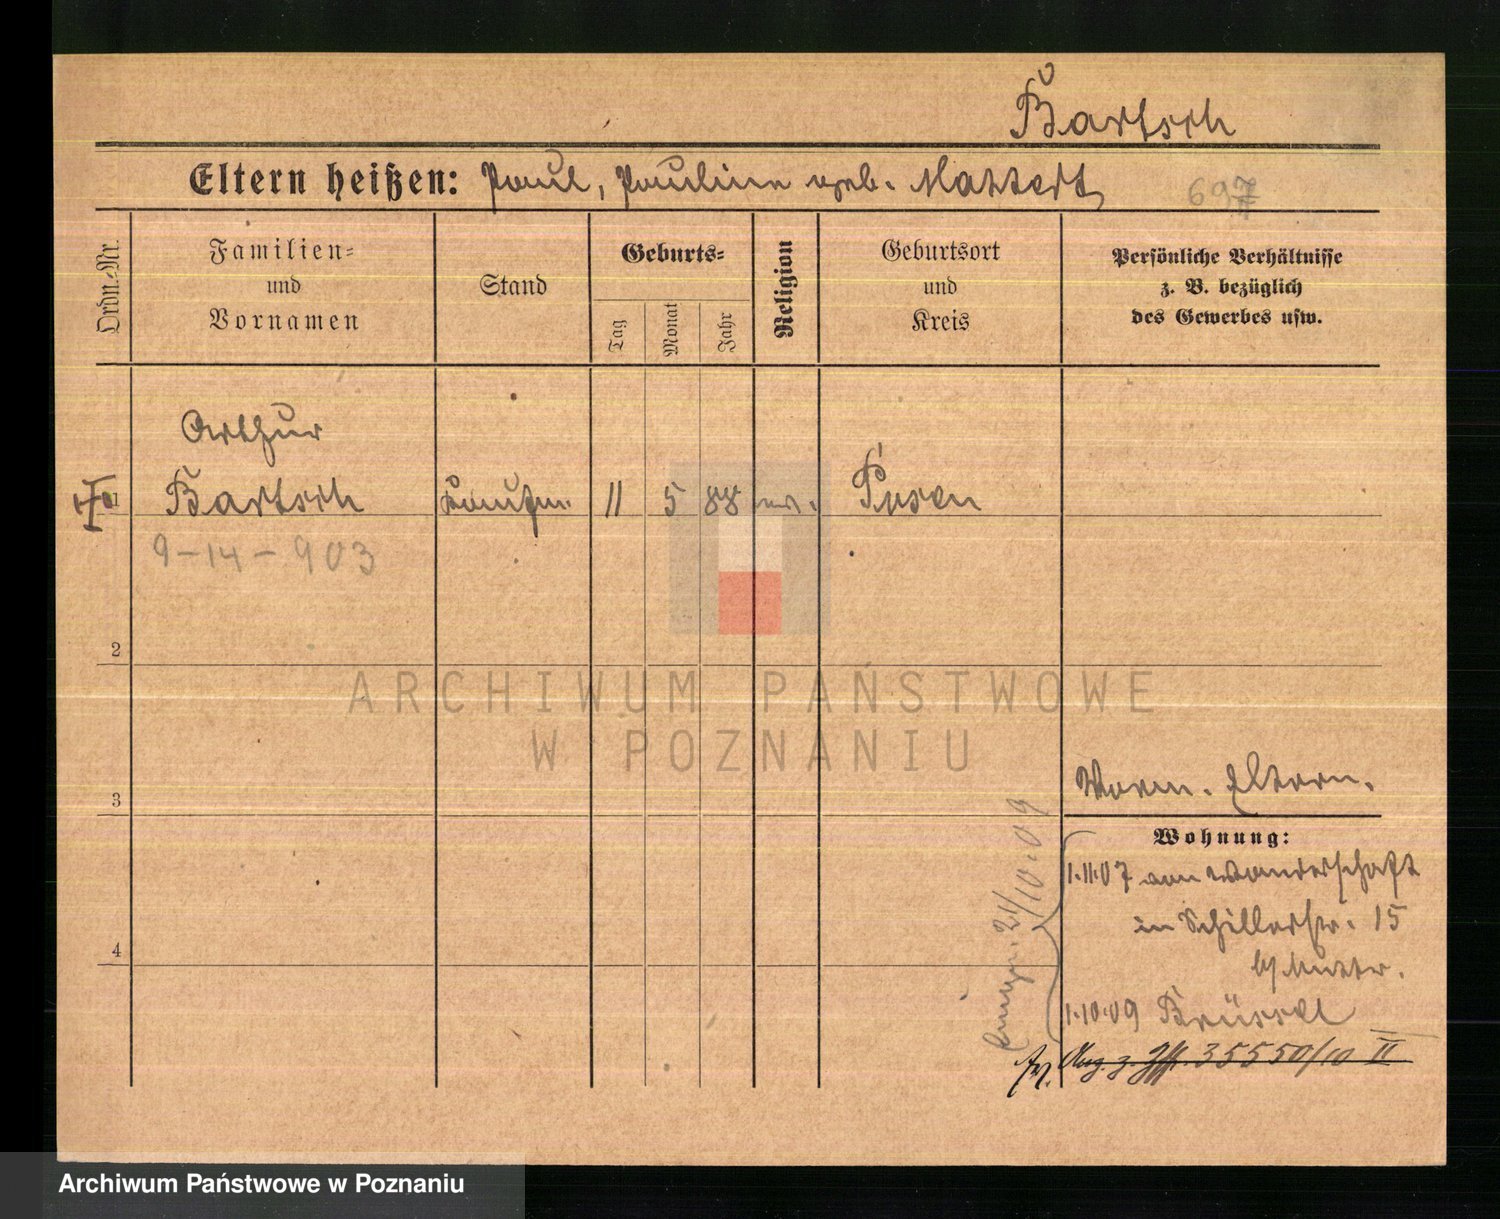 Bartsch
Eltern heißen: Paul, Pauline geb. Mattert
697
Ordn.-Nr.
Familien-
und
Vornamen
Stand
Geburts-
Tag
Monat
Jahr
Religion
Geburtsort
und
Kreis
Persönliche Verhältnisse
z. B. bezüglich
des Gewerbes usw.
Arthur
1
Bartsch
Kaufm.
11
5
88
Posen
9-14-903
2
ARCHIWUM PAŃSTWOWE
W POZNANIU
3
Vorm. Eltern.
Wohnung:
1.11.07 von Wanderschaft
in Schillerstr. 15
b/ Mutter.
4
21/10.09
1.10.09 Brüssel
Ang. z. 35550/10 II
Archiwum Państwowe w Poznaniu